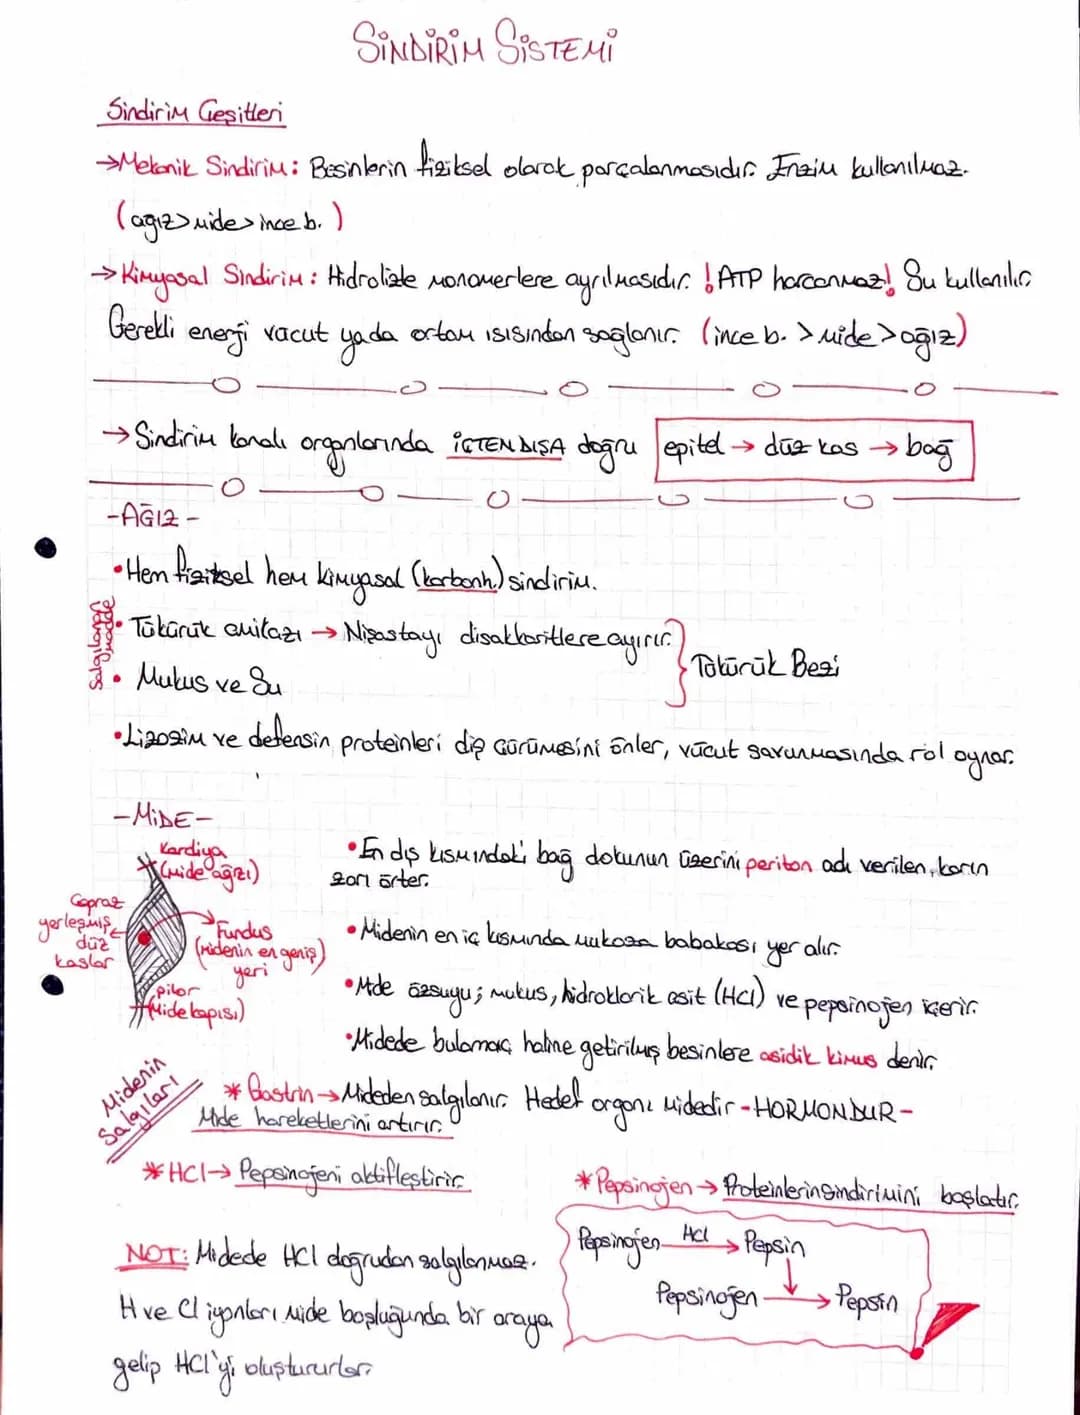 SİNDİRİM SİSTEMİ
Sindirim Çeşitleri
→Mekanik Sindirim: Besinlerin fiziksel olarak parçalanmasıdır. Enzim kullanılmaz.
(ağız>mide>ince b.)
→Kimyasal Sindirim: Hidrolizle monomerlere ayrılmasıdır. !ATP harcanmaz! Su kullanılır.
Gerekli enerji vücut yada ortam ısısından sağlanır. (ince b. >mide>ağız)
→Sindirim kanalı organlarında İÇTEN DIŞA doğru epitel → düz kas → bağ
-AĞIZ-
•Hem fiziksel hem kimyasal (karbonh.) sindirim.
Salgılanan madde
• Tükürük amilazı → Nişastayı disakkaritlere ayırır.
• Mukus ve Su
Tükürük Bezi
•Lizozim ve defensin proteinleri diş çürümesini önler, vücut savunmasında rol oynar.
-MİDE-
Kardiya
(Mide ağzı)
Çapraz
yerleşmiş
düz
kaslar
Fundus
(Midenin en geniş)
yeri
pilor
(Mide kapısı)
•En dış kısmındaki bağ dokunun üzerini periton adı verilen, karın
zarı örter.
•Midenin en iç kısmında mukoza babakası yer alır.
•Mide özsuyu; mukus, hidroklorik asit (HCl) ve pepsinojen içerir.
•Midede bulamaç haline getirilmiş besinlere asidik kimus denir.
Midenin
Salgıları
*Gastrin→Mideden salgılanır. Hedef organı midedir -HORMONDUR-
Mide hareketlerini artırır.
*HCl→ Pepsinojeni aktifleştirir.
*Pepsinojen→ Proteinlerin sindirimini başlatır.
Pepsinojen HCl → Pepsin
Pepsinojen → Pepsin
NOT: Midede HCl doğrudan salgılanmaz.
H ve Cl iyonları mide boşluğunda bir araya
gelip HCl'yi oluştururlar.